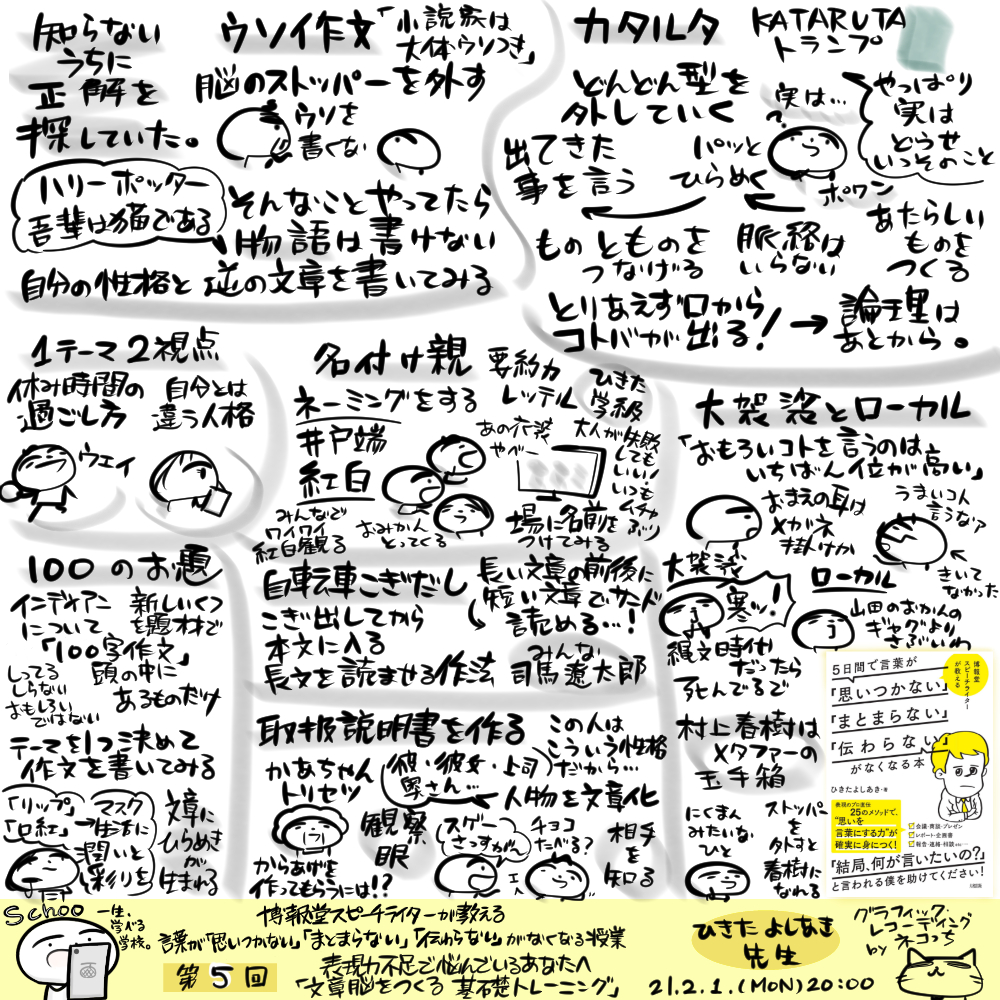 知らない
うちに
正解を
探していた。
ハリーポッター
吾輩は猫である
ウソ作文
「小説家は
大体ウソつき」
脳のストッパーを外す
ウソを
書くない
そんなことやってたら
物語は書けない
自分の性格と逆の文章を書いてみる
カタルタ
KATARUTA
トランプ
どんどん型を
外していく
実は…
やっぱり
実は
どうせ
いっそのこと
出てきた
事を言う
パッと
ひらめく
ポワン
ものとものを
つなげる
脈絡は
いらない
あたらしい
ものを
つくる
とりあえず口から
コトバが出る!
→論理は
あとから。
1テーマ2視点
休み時間の
過ごし方
自分とは
違う人格
ウェイ
名付け親
要約力
レッテル
ひきた
学級
ネーミングをする
井戸端
紅白
あの衣装
やべー
大人が失敗
しても
いい!
いつも
ムチャ
ぶり
みんなで
ワイワイ
紅白観る
おみかん
とってくる
場に名前を
つけてみる
大袈裟とローカル
「おもろいコトを言うのは
いちばん位が高い」
おまえの耳は
メガネ
掛けか
うまいコト
言うなァ
きいて
なかった
大袈裟
寒ッ!
縄文時代
だったら
死んでるで
ローカル
山田のおかんの
ギャグより
さぶいわ
100のお題
インディアン
について
新しいくつ
を題材で
「100字作文」
しってる
しらない
おもしろい
ではない
頭の中に
あるものだけ
テーマを1つ決めて
作文を書いてみる
「リップ」
「口紅」
→
マスク
生活に
潤いと
彩りを
文章に
ひらめき
が
生まれる
自転車こぎだし
こぎ出してから
本文に入る
長文を読ませる作法
長い文章の前後に
短い文章でサンド
読める…!
みんな
司馬遼太郎
取扱説明書を作る
かあちゃん
トリセツ
彼・彼女・上司
奥さん…
この人は
こういう性格
だから…
人物を文章化
からあげを
作ってもらうには!?
観察
眼
スゲー
さっすがぁ
チョコ
たべる?
相手
を
知る
村上春樹は
メタファーの
玉手箱
にくまん
みたいな
ひと
ストッパー
を
外すと
春樹に
なれる
博報堂
スピーチライター
が教える
5日間で言葉が
「思いつかない」
「まとまらない」
「伝わらない」
がなくなる本
ひきたよしあき・著
表現のプロ直伝
25のメソッドで、
"思いを
言葉にする力"が
確実に身につく!
会議・商談・プレゼン
レポート・企画書
報告・連絡・相談etc…
「結局、何が言いたいの?」
と言われる僕を助けてください!
大和出版
Schoo
一生、
学べる
学校。
博報堂スピーチライターが教える
言葉が「思いつかない」「まとまらない」「伝わらない」がなくなる授業
第5回
表現力不足で悩んでいるあなたへ
「文章脳をつくる 基礎トレーニング」
ひきたよしあき
先生
21.2.1.(MON)20:00
グラフィック
レコーディング
by ネコっち